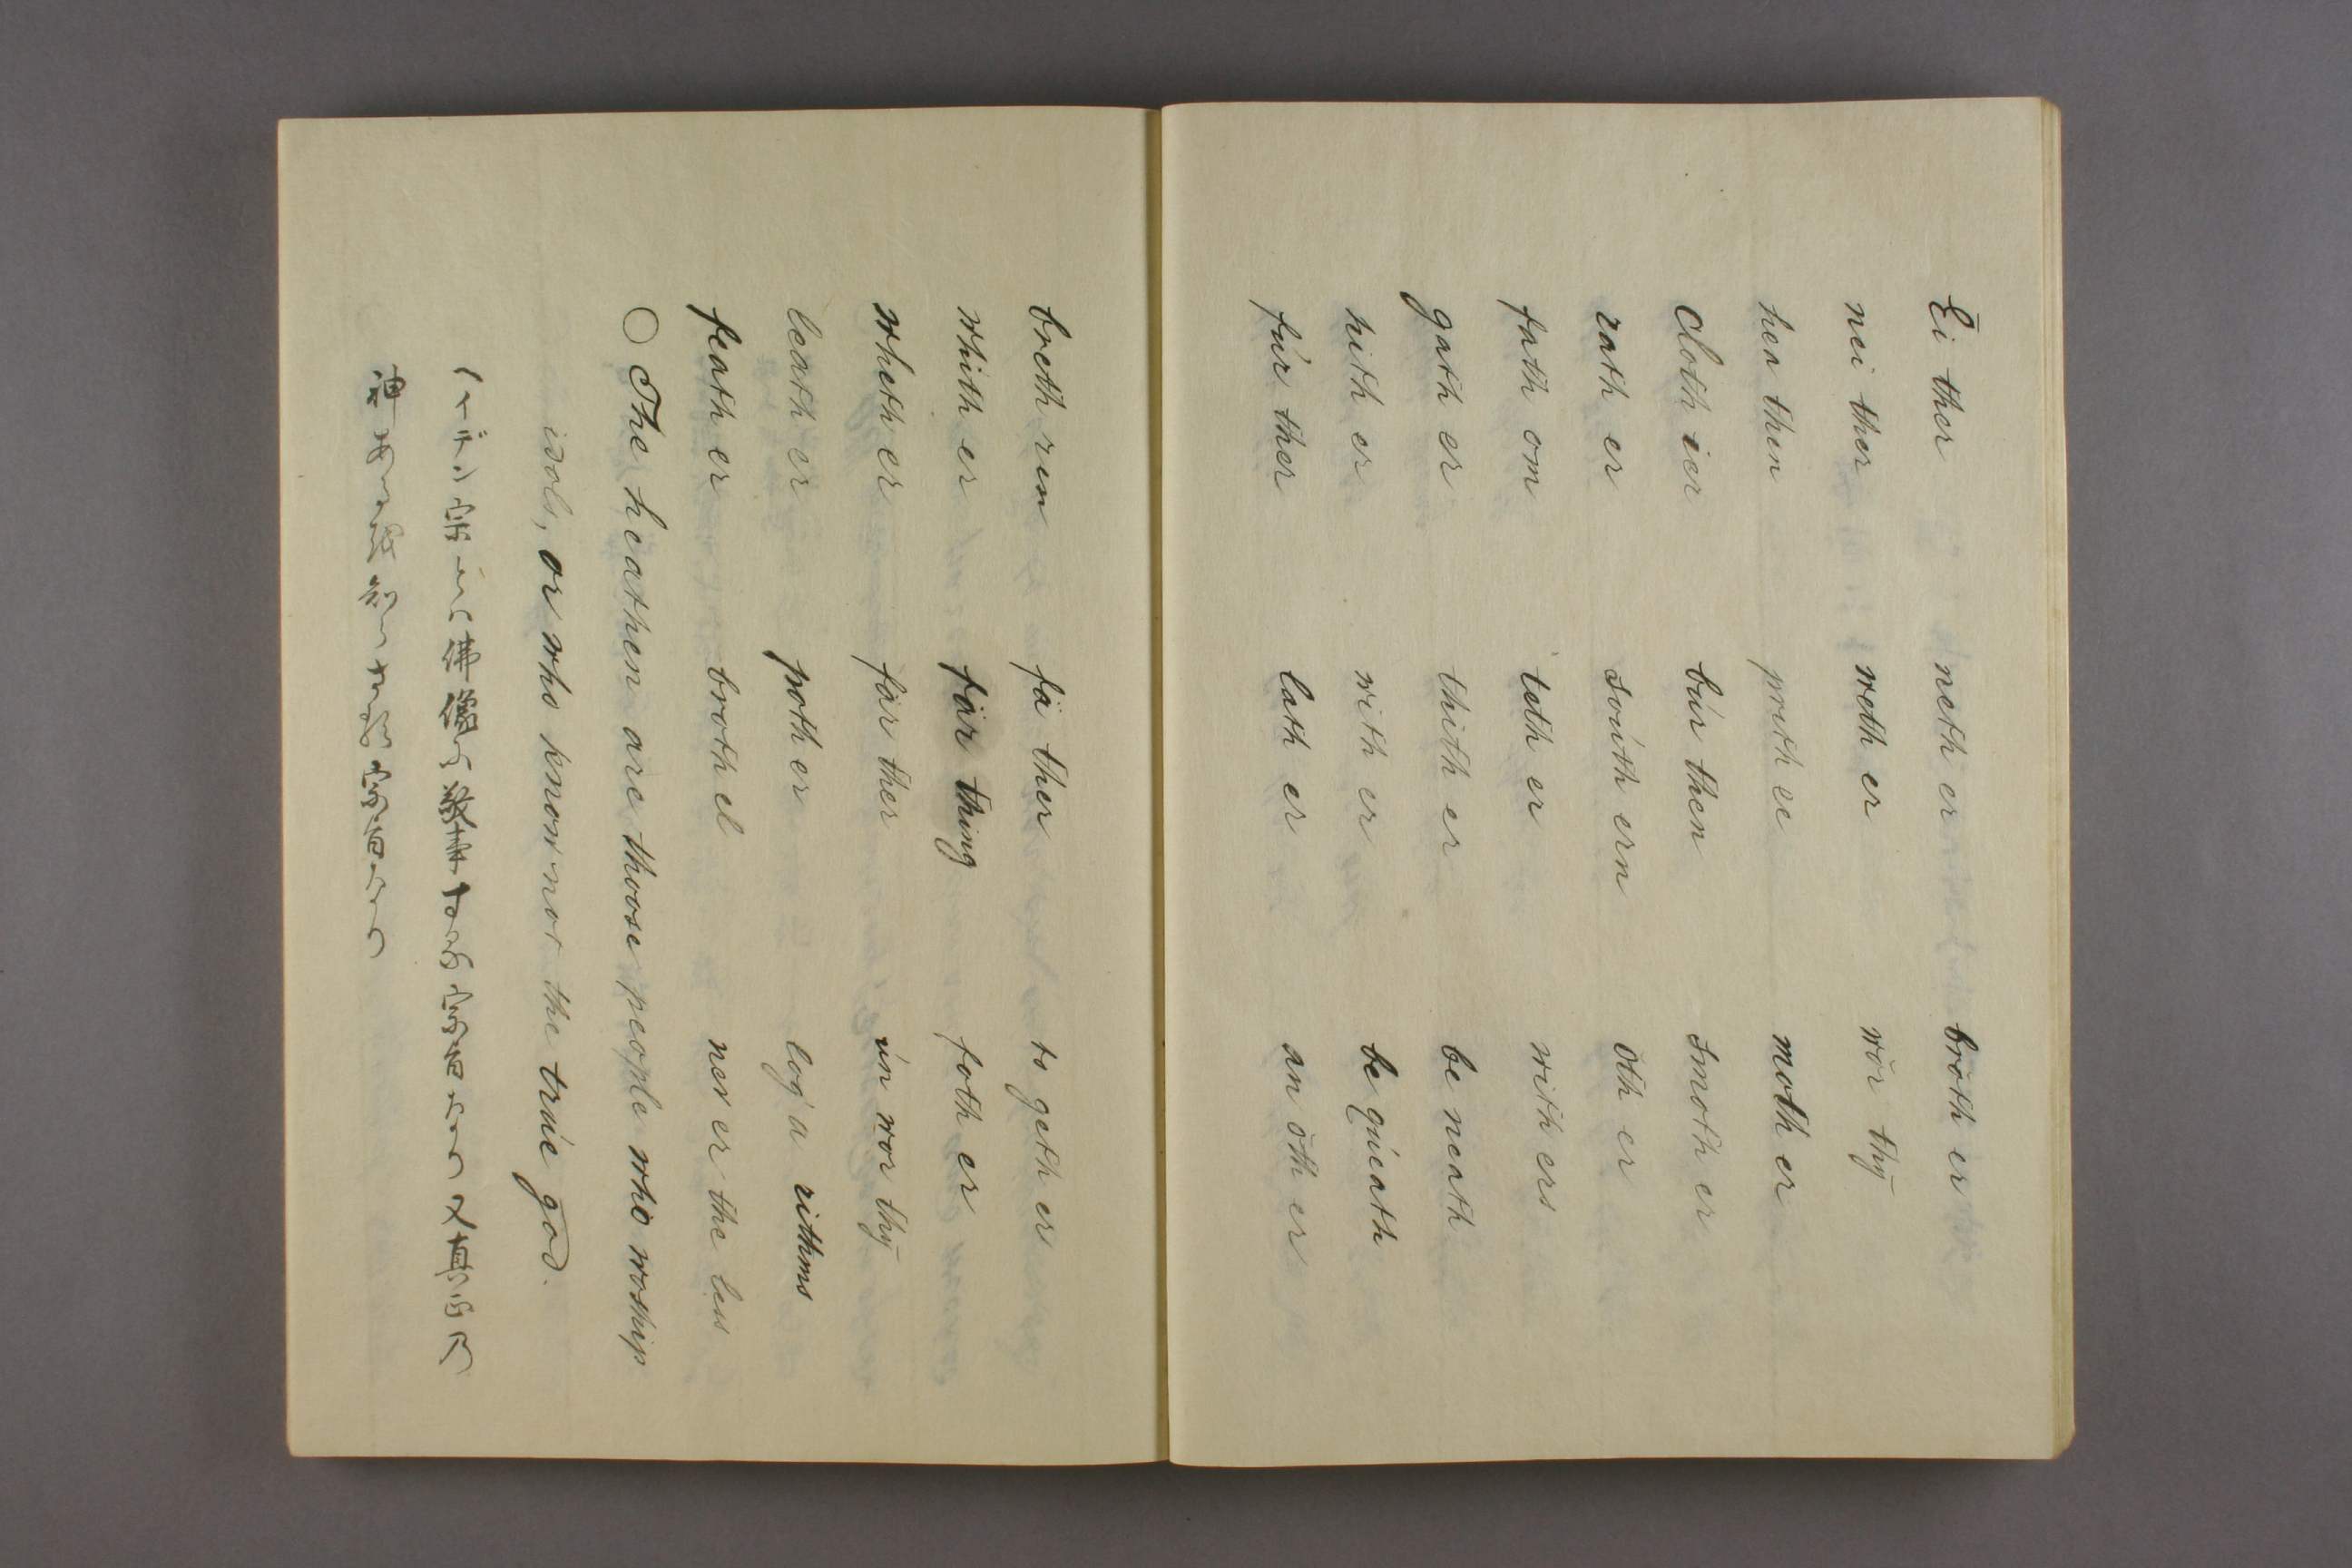 Ēi ther neth er brōth er
nei ther weth er wōr thȳ
hea then prith ee moth er
Cloth ier búr then smoth er
rath er soúth ern oth er
fath om teth er with ers
gath er thith er be neath
hith er with er be queath
fúr ther lath er an oth er
breth ren fä ther to geth er
whith er fär thing foth er
wheth er fär ther ún wor thȳ
leath er poth er log a rithms
feath er broth el nev er the less
○ The heathen are thoose people who woship
idols, or who know not the trúe god.
ハイデン宗 佛像 敬事する宗旨なり又真 乃
神 知 宗旨なり